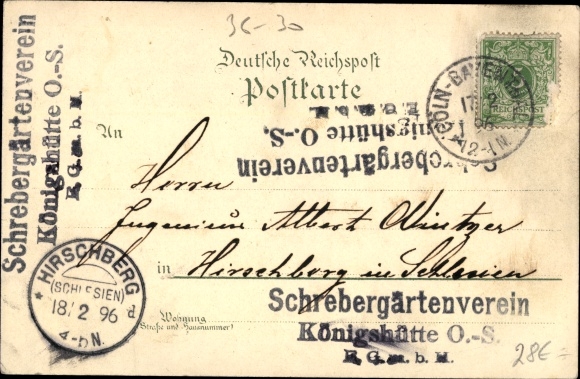 36-30
Deutsche Reichspost
Postkarte
REICHSPOST
CÖLN-BAYENTHAL
17 2
96
12-1N.
Schrebergärtenverein
Königshütte O.-S.
E. G. m. b. H.
Schrebergärtenverein
Königshütte O.-S.
E. G. m. b. H.
An
Herrn
Ingenieur Albert
in Hirschberg in Schlesien
HIRSCHBERG
(SCHLESIEN)
18/2 96
4-5N.
d
Wohnung
(Straße und Hausnummer)
Schrebergärtenverein
Königshütte O.-S.
E. G. m. b. H.
28E=